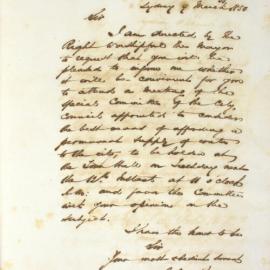 Sydney March 1850
Sir
I am directed by the
Right Worshipful the Mayor
to request that you will be
pleased to inform me whether
it will be convenient for you
to attend a meeting of the
Special Committee of the City
Council appointed to consider
the best means of affording a
permanent supply of water
to the city to be holden at
the Town Hall on next
the Instant at o'clock
and favor the Committee
with your opinion on the
subject.
I have the honor to be
Sir
Your most obedient Servant